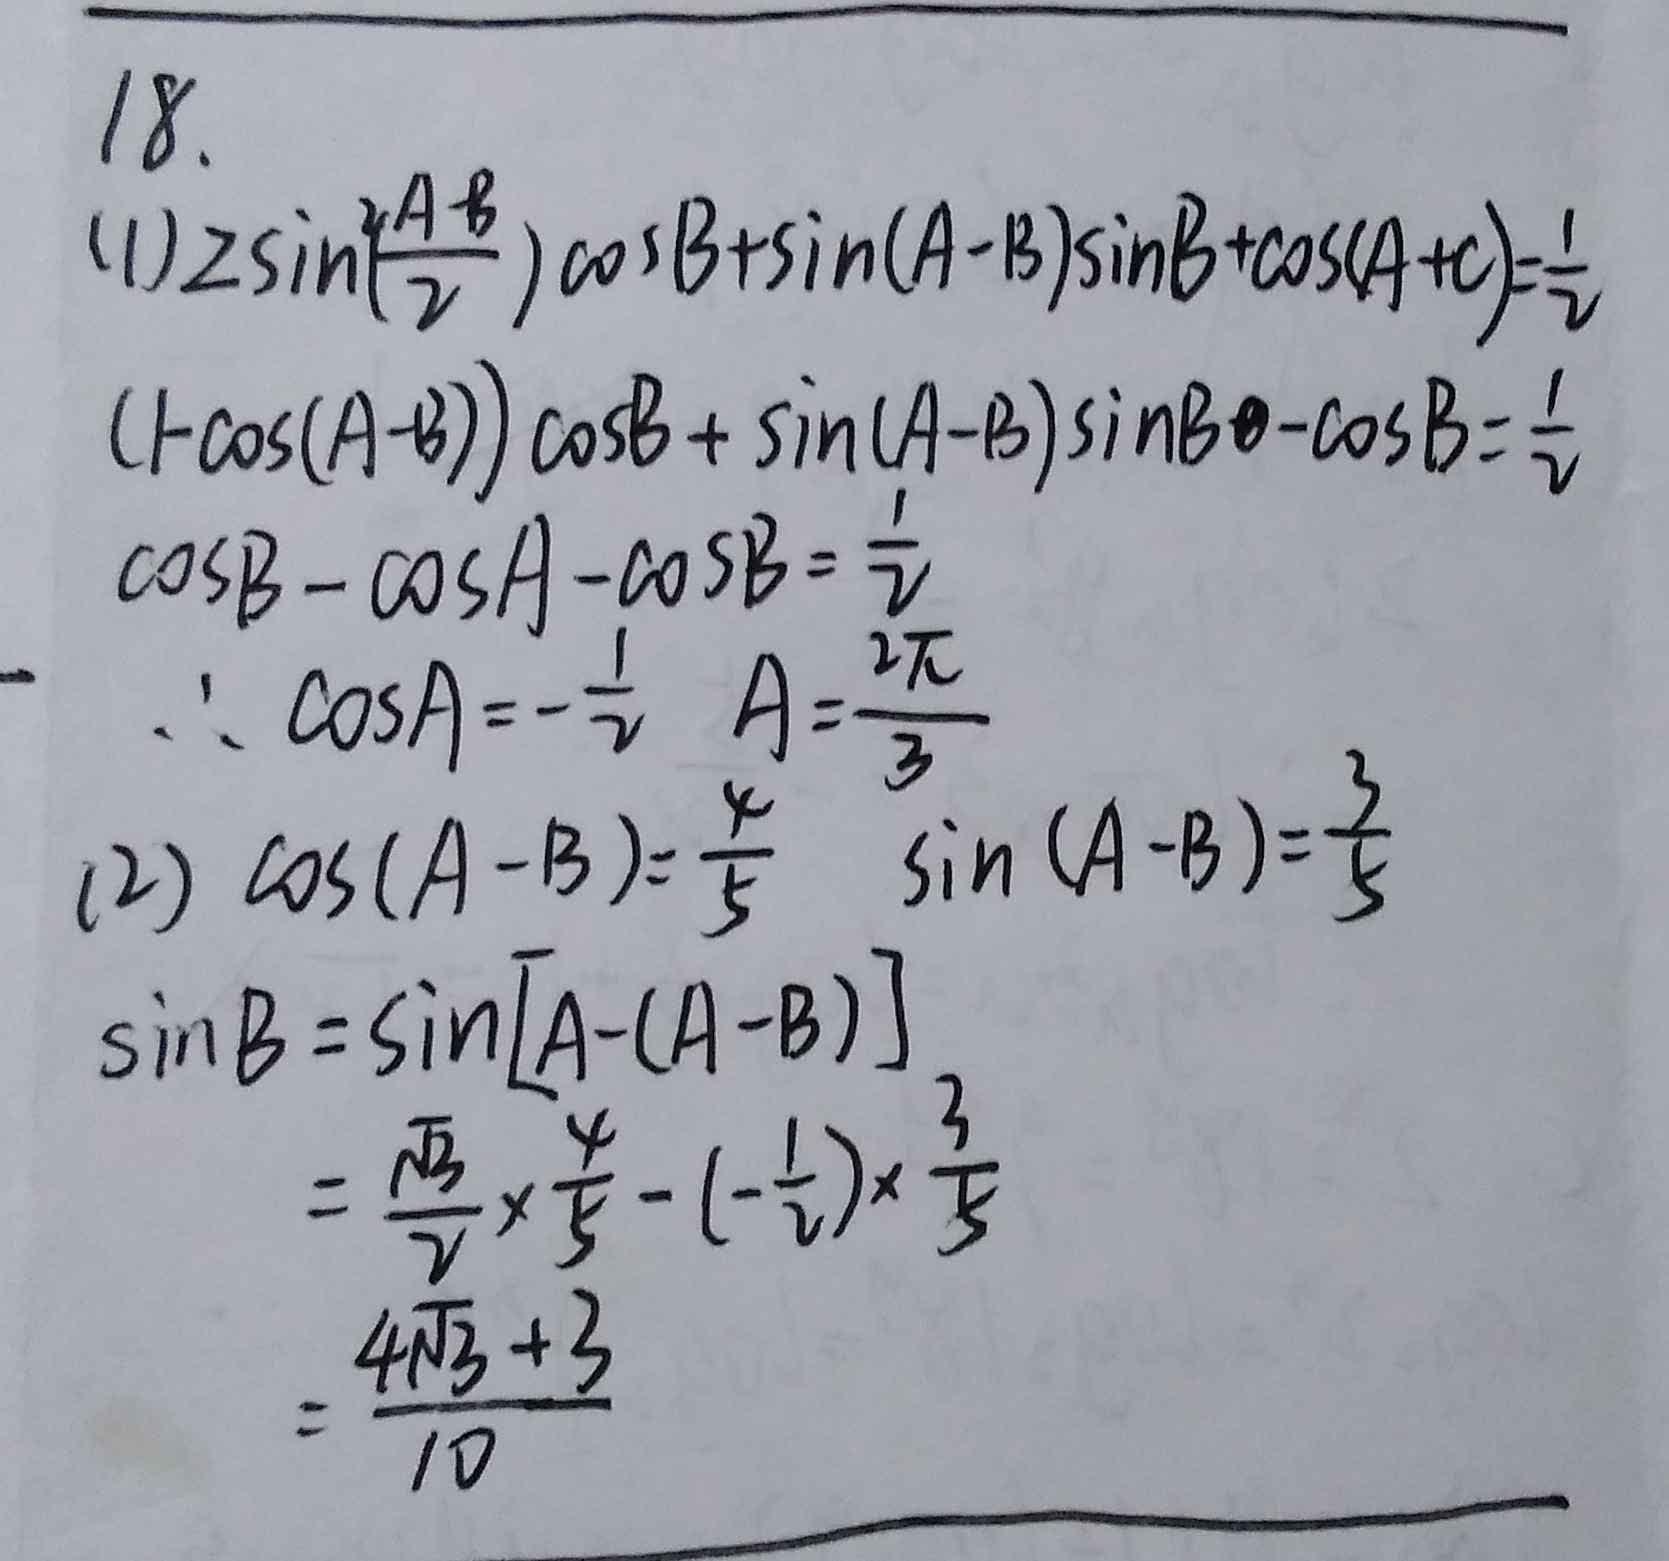 18.
(1) 2sin²(\frac{A-B}{2})cosB+sin(A-B)sinB+cos(A+C)=\frac{1}{2}
(1-cos(A-B))cosB+sin(A-B)sinB-cosB=\frac{1}{2}
cosB-cosA-cosB=\frac{1}{2}
∴ cosA=-\frac{1}{2} A=\frac{2π}{3}
(2) cos(A-B)=\frac{4}{5} sin(A-B)=\frac{3}{5}
sinB=sin[A-(A-B)]
=\frac{√3}{2}×\frac{4}{5}-(-\frac{1}{2})×\frac{3}{5}
=\frac{4√3+3}{10}